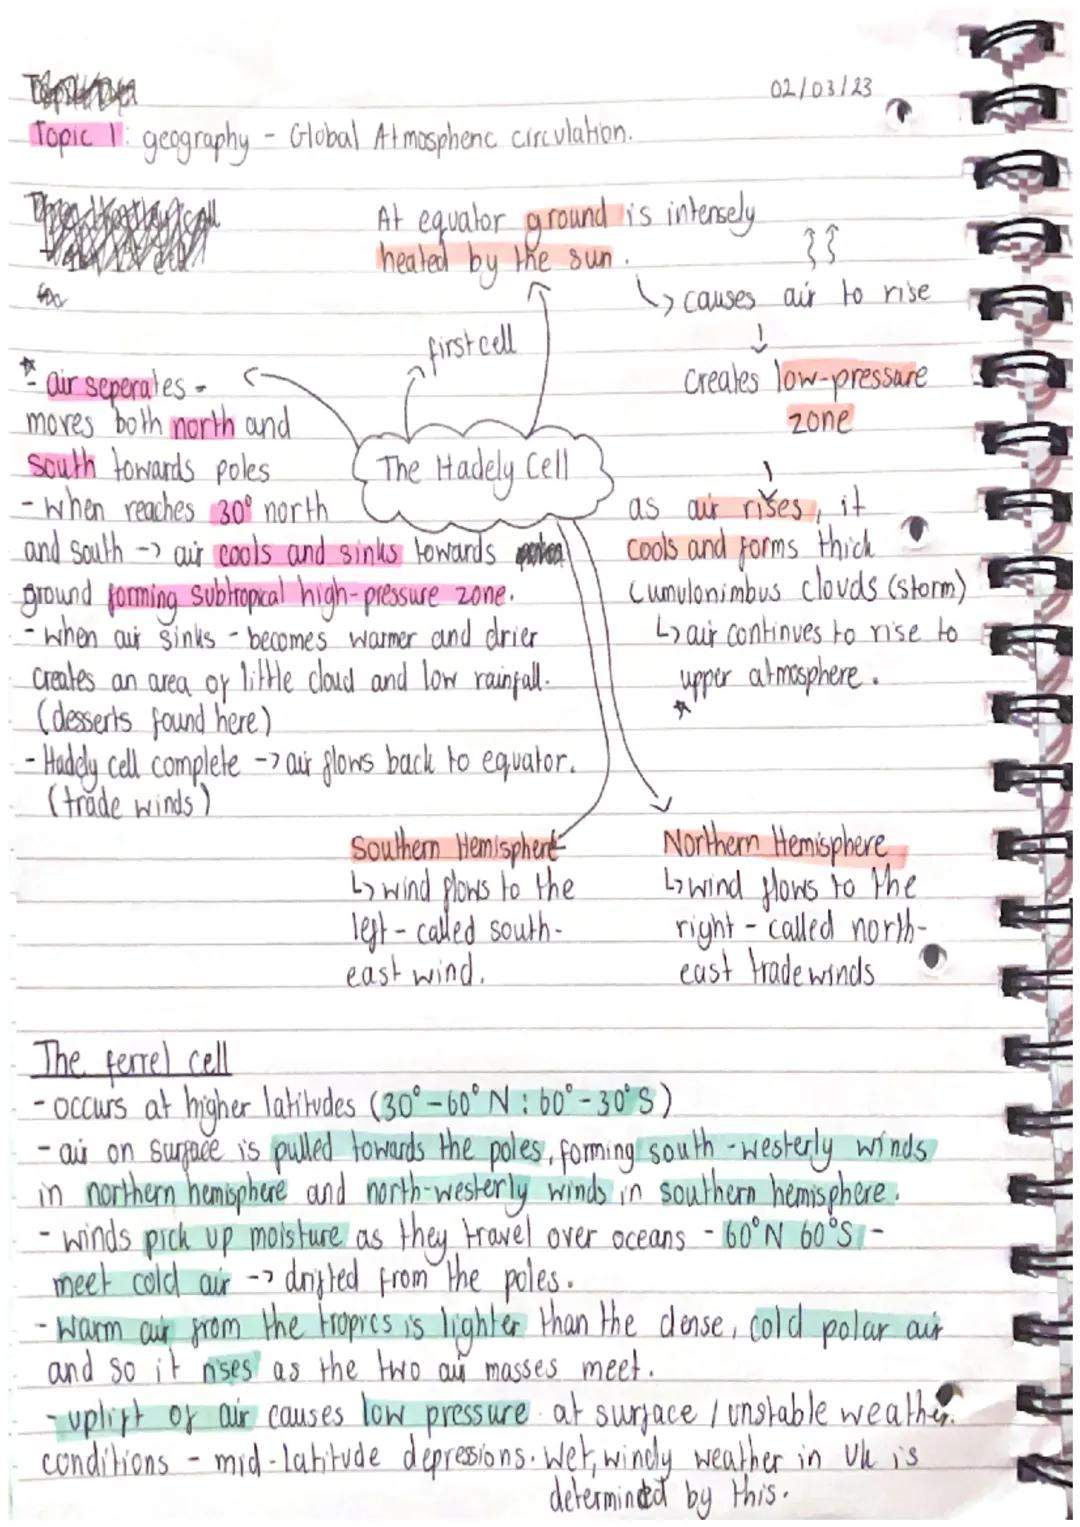 02/03/23
Topic 1: geography - Global Atmospheric circulation.
At equator ground is intensely
heated by the sun.
↳ causes air to rise
↓
creates low-pressure
zone
↓
as air rises, it
cools and forms thick
cumulonimbus clouds (storm)
↳ air continues to rise to
upper atmosphere.
☆
first cell
The Hadely Cell
☆
- air seperates -
moves both north and
south towards poles
- when reaches 30° north
and south -> air cools and sinks towards
ground forming subtropical high-pressure zone.
- when air sinks - becomes warmer and drier
creates an area of little cloud and low rainfall.
(desserts found here)
- Hadely cell complete -> air flows back to equator.
(trade winds)
Southern Hemisphere
↳ wind flows to the
left - called south-
east wind.
Northern Hemisphere
↳ wind flows to the
right - called north-
east trade winds
The ferrel cell
- occurs at higher latitudes (30°-60°N : 60°-30°S)
- air on surface is pulled towards the poles, forming south-westerly winds
in northern hemisphere and north-westerly winds in southern hemisphere.
- winds pick up moisture as they travel over oceans - 60°N 60°S -
meet cold air -> drifted from the poles.
- Warm air from the tropics is lighter than the dense, cold polar air
and so it rises as the two air masses meet.
- uplift of air causes low pressure at surface / unstable weather
conditions - mid-latitude depressions. Wet, windy weather in Uk is
determined by this.